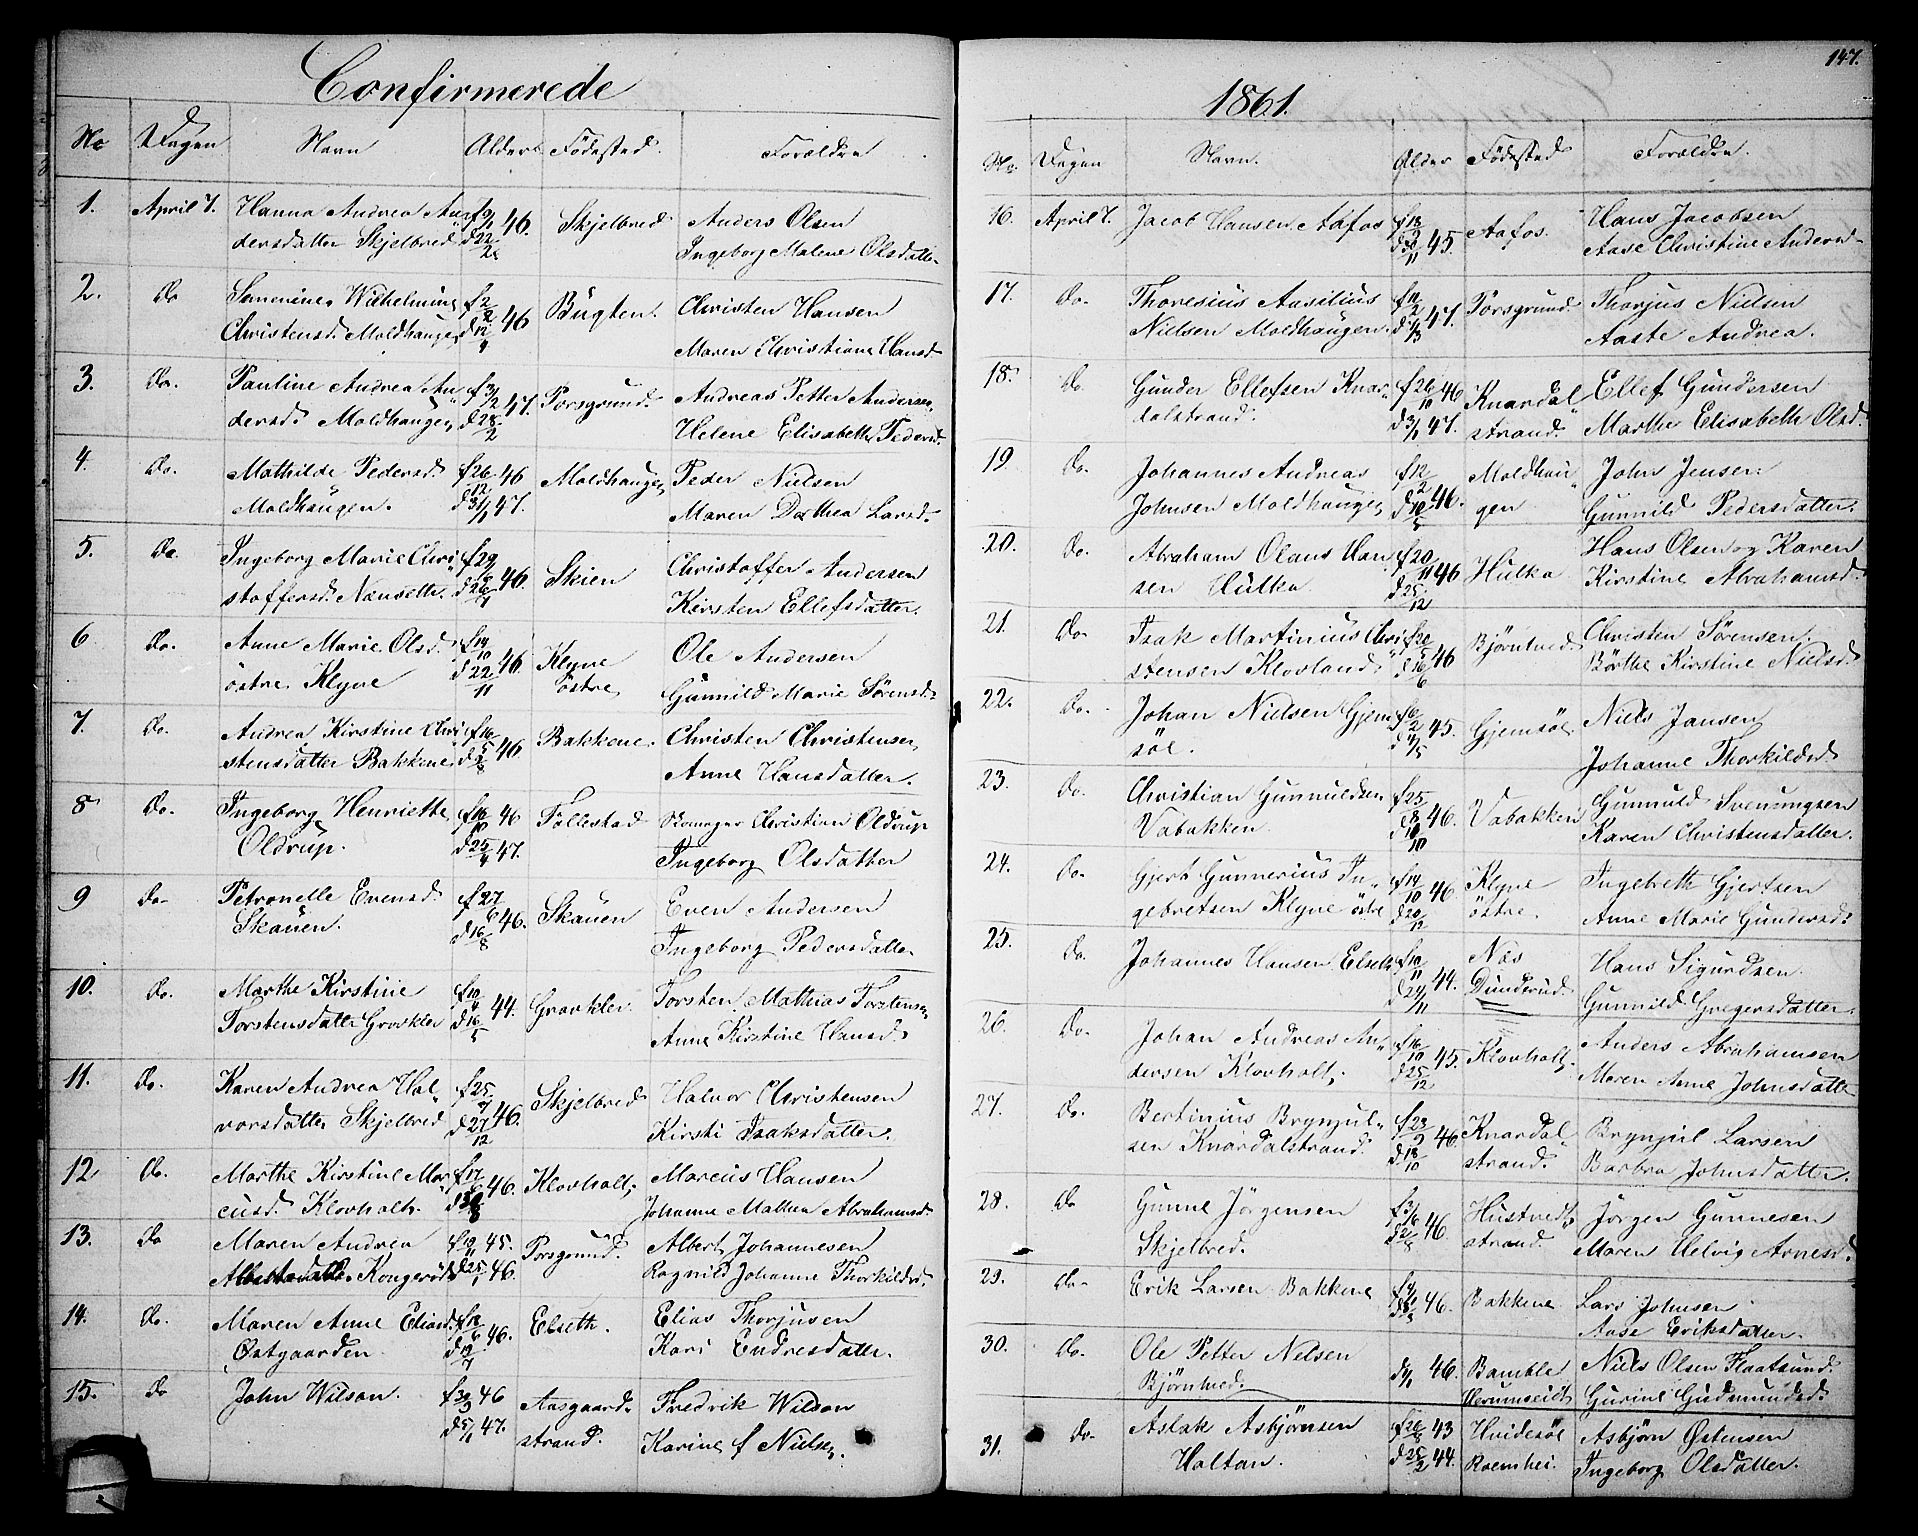 Confirmerede
No Dagen Navn Alder Födested. Forældre
1. April 7. Hanna Andrea An f 9/1 46. Skjelbred Anders Olsen
dersdatter Skjelbred d 22/2 Ingeborg Malene Olsdatter
2. Do Wilhelmine f 2/2 46 Bugten. Christen Hansen
Christensd. Moldhaugen d 12/4 Maren Christiane Hansd.
3. Do. Pauline Andrea An f 3/2 47. Porsgrund. Andreas Petter Andersen
dersd. Moldhaugen d 28/2 Helene Elisabeth Pedersd.
4. Do. Mathilde Pedersd. f 26/12 46 Moldhaugen Peder Nielsen
Moldhaugen. d 31/1 47. Maren Dorthea Larsd.
5. Do. Ingeborg Marie Chri f 29 46. Skien Christoffer Andersen
stoffersd. Næusette. d 26 Kirsten Ellefsdatter.
6 Do. Anne Marie Olsd. f 14/10 46. Klyve Ole Andersen
östre Klyve d 22/11 östre Gunnild Marie Sørensd.
7. Do. Andrea Kirstine Chri f 16/5 46. Bakkene. Christen Christensen
stensdatter Bakkene d /8 Anne Hansdatter.
8 Do. Ingeborg Henriette f 16/10 46 Follestad Christian Oldrup
Oldrup. d 25/4 47. Ingeborg Olsdatter
9 Do. Petronelle Evensd. f 27/6 46. Skauen Even Andersen
Skauen. d 16/8 Ingeborg Pedersdatter
10. Do. Marthe Kirstine f 10/4 44. Gravkler. Torsten Mathias Torstensen
Torstensdatter Gravkler d 16/5 Anne Kirstine Hansd.
11. Do. Karen Andrea Hal f 25/7 46. Skjelbred Halvor Christensen
vorsdatter Skjelbred d 27/12 Kirsti Isaksdatter.
12 Do. Marthe Kirstine Mar f 17/6 46. Klovholt, Marcus Hansen
cusd. Klovholt. d /8 Johanne Mathea Abrahamsd.
13. Do Maren Andrea f 19/11 45. Porsgrund. Albert Johannesen
Albertsdatter Kongerød d 25/1 46. Ragnild Johanne Thorkildsd.
14. Do. Maren Anne Eliasd. f 18/6 46. Elseth. Elias Thorjusen
Østgaarden d 19/7 Kari Endresdatter.
15. Do John Wilson. f 30/9 46 Aasgaard Fredrik Wilson
d 5/1 47. strand. Karine f Nielsen.
147.
1861.
No. Dagen Navn. Alder Födested Forældre.
16. April 7. Jacob Hansen Aafos f 18/9 45. Aafos. Hans Jacobsen
d 30/11 Aase Christine Andersd.
17. Do. Thoresius Aasilius f 11/2 47. Porsgrund. Thorjus Nielsen
Nielsen Moldhaugen. d /3 Aaste Andrea.
18. Do. Gunder Ellefsen Knar f 26/10 46 Knardal Ellef Gundersen
dalstrand. d 3/1 47. strand. Marthe Elisabeth Olsd.
19 Do. Johannes Andreas f 12/2 46. Moldhau John Jensen
Johnsen Moldhaugen d 10/5 gen Gunnild Pedersdatter.
20. Do. Abraham Olaus Han f 20/11 46 Hulka Hans Olsen og Karen
sen Hulka d 25/12 Kirstine Abrahamsd.
21. Do. Isak Martinius Chri f 20/5 46 Björntved. Christen Sörensen.
stensen Klovland. d 16/6 Börthe Kirstine Nielsd.
22. Do. Johan Nielsen Gjem f 6/2 45. Gjemsöl Niels Jansen
söl. d 4/5 Johanne Thorkildsd.
23. Do. Christian Gunnuldsen f 25/8 46. Vabakken Gunnuld Svenungsen
Vabakken. d 10/10 Karen Christensdatter.
24. Do. Gjert Gunnerius In f 14/10 46. Klyve Ingebreth Gjertsen
gebretsen Klyve östre d 20/12 östre. Anne Marie Gundersd.
25. Do. Johannes Hansen Elseth f 10/11 44. Næs Hans Sigurdsen.
d 24/11 Dunderud. Gunnild Gregersdatter.
26. Do. Johan Andreas An f 16/10 45. Klovholt, Anders Abrahamsen
dersen Klovholt, d 25/12 Maren Anne Johnsdatter
27. Do. Bertinius Brynjul f 23/9 46. Knardal Brynjul Larsen
sen Knardalstrand. d 18/10 strand. Barbra Johnsdatter.
28. Do Gunne Jörgensen f 3/6 46. Hustvedt Jörgen Gunnesen
Skjelbred. d 2/8 strand. Maren Helvig Arnesd.
29. Do. Erik Larsen Bakkene f 46. Bakkene Lars Johnsen
Aase Eriksdatter.
30. Do. Ole Petter Nelsen 46. Bamble Niels Olsen Flaatsund.
Björntved. Gurine Gudmundsd.
31. Do. Aslak Asbjörnsen f 26/8 43 Hvidesöe Asbjörn Østensen
Haltan. d 25/2 44. Roemhei. Ingeborg Olsdatter.